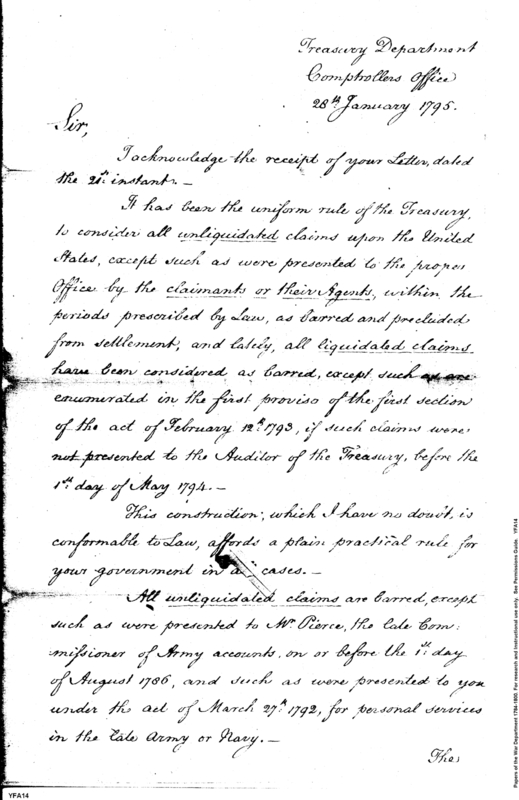 Treasury Department
Comptrollers Office
28th January 1795.
Sir,
I acknowledge the receipt of your Letter, dated
the 21st instant. —
It has been the uniform rule of the Treasury,
to consider all unliquidated claims upon the United
States, except such as were presented to the proper
Office by the claimants or their Agents, within the
periods prescribed by Law, as barred and precluded
from settlement, and lately, all liquidated claims
have been considered as barred, except such as are
enumerated in the first proviso of the first section
of the act of February 12th 1793, if such claims were
not presented to the Auditor of the Treasury, before the
1st day of May 1794. —
This construction, which I have no doubt, is
conformable to Law, affords a plain practical rule for
your government in cases. —
All unliquidated claims are barred, except
such as were presented to Mr. Pierce, the late Com:
missioner of Army accounts, on or before the 1st day
of August 1786, and such as were presented to you
under the act of March 27th 1792, for personal services
in the late Army or Navy. —
The
YFA14
Papers of the War Department 1784-1800. For research and instructional use only. See Permissions Guide. YFA14